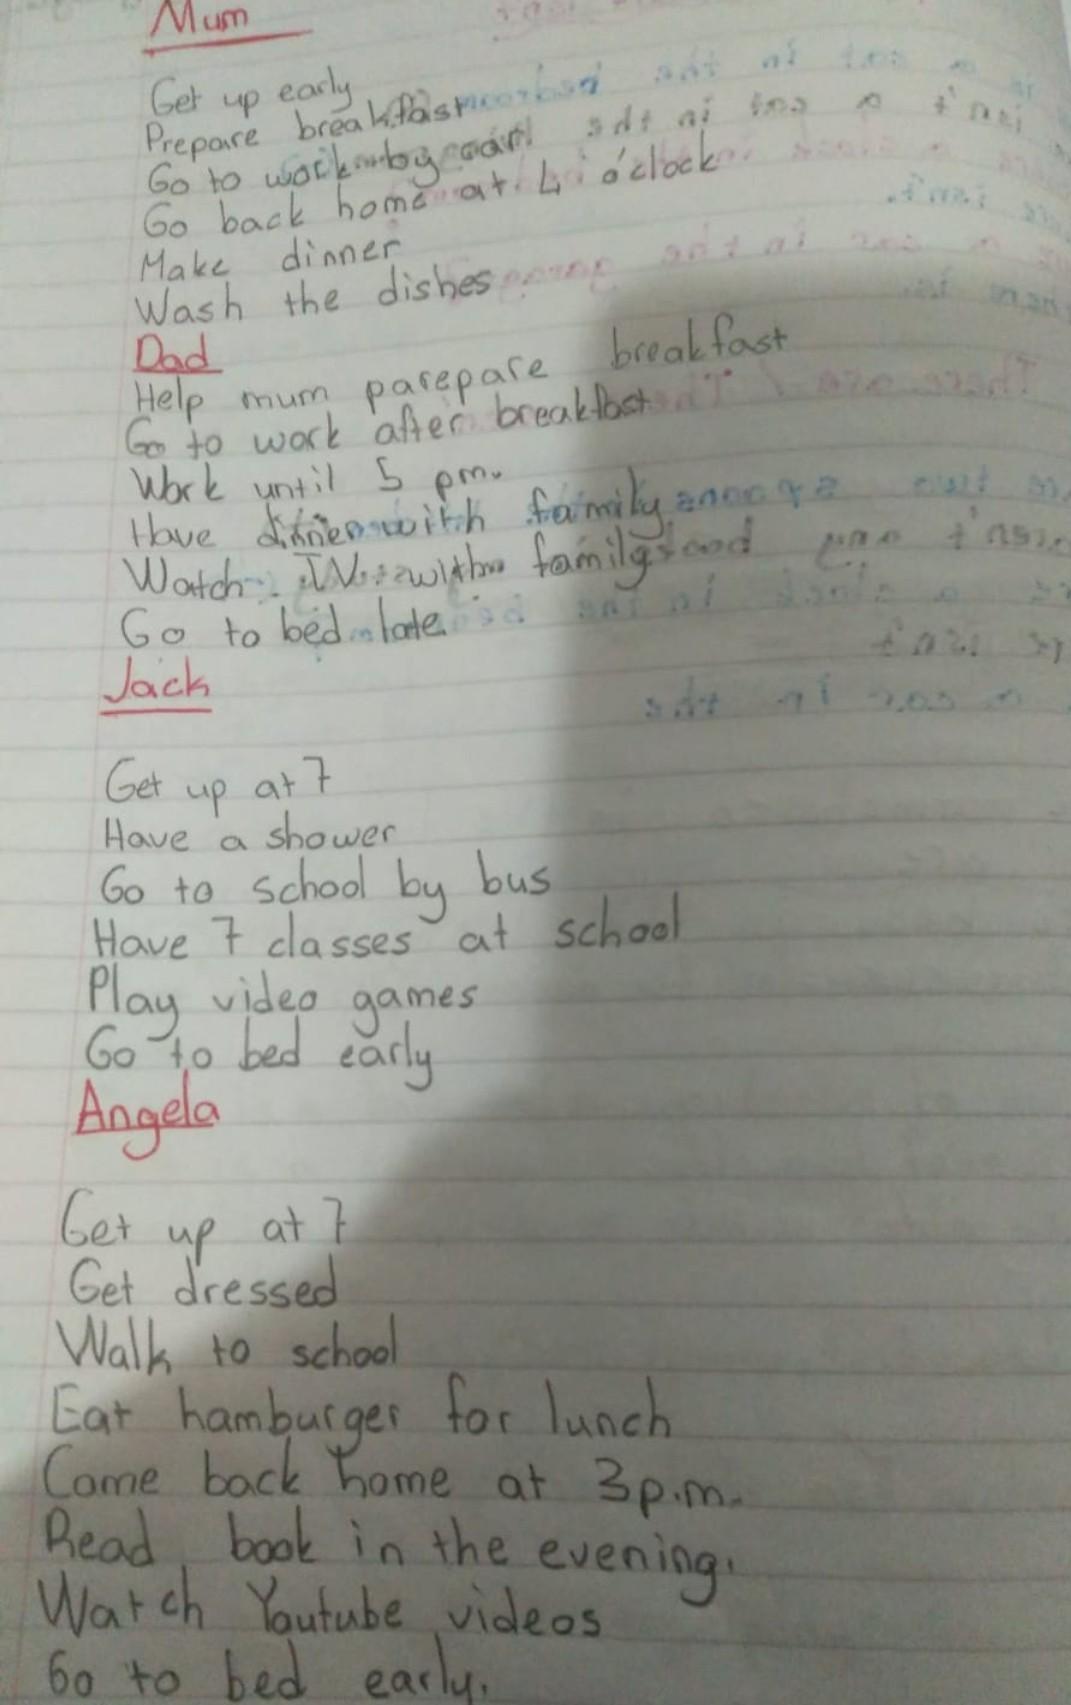 Mum
Get up early
Prepare breakfast
Go to work by car
Go back home at 4 o'clock
Make dinner
Wash the dishes
Dad
Help mum parepare breakfast
Go to work after breakfast
Work until 5 pm.
Have dinner with family
Watch TV with family
Go to bed late.
Jack
Get up at 7
Have a shower
Go to school by bus
Have 7 classes at school
Play video games
Go to bed early
Angela
Get up at 7
Get dressed
Walk to school
Eat hamburger for lunch
Come back home at 3p.m.
Read book in the evening.
Watch Youtube videos
Go to bed early.